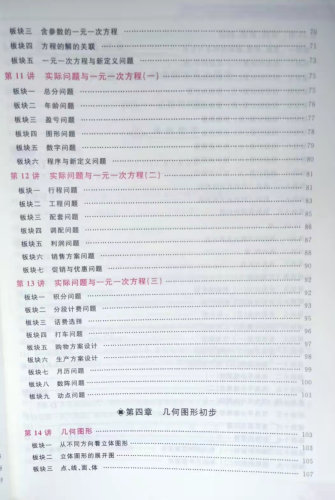 板块三 含参数的一元一次方程 70
板块四 方程的解的关联 71
板块五 一元一次方程与新定义问题 73
第 11 讲 实际问题与一元一次方程(一) 75
板块一 总分问题 75
板块二 年龄问题 76
板块三 盈亏问题 77
板块四 图形问题 78
板块五 数字问题 79
板块六 程序与新定义问题 80
第 12 讲 实际问题与一元一次方程(二) 81
板块一 行程问题 81
板块二 工程问题
板块三 配套问题
板块四 调配问题
板块五 利润问题
板块六 销售方案问题
板块七 促销与优惠问题 90
第 13 讲 实际问题与一元一次方程(三) 92
板块一 积分问题 92
板块二 分段计费问题
板块三 话费选择
板块四 打车问题
板块五 购物方案设计
板块六 生产方案设计
板块七 月历问题
板块八 数阵问题
板块九 动点问题
第四章 几何图形初步
第 14 讲 几何图形 103
板块一 从不同方向看立体图形 103
板块二 立体图形的展开图 105
板块三 点、线、面、体 107